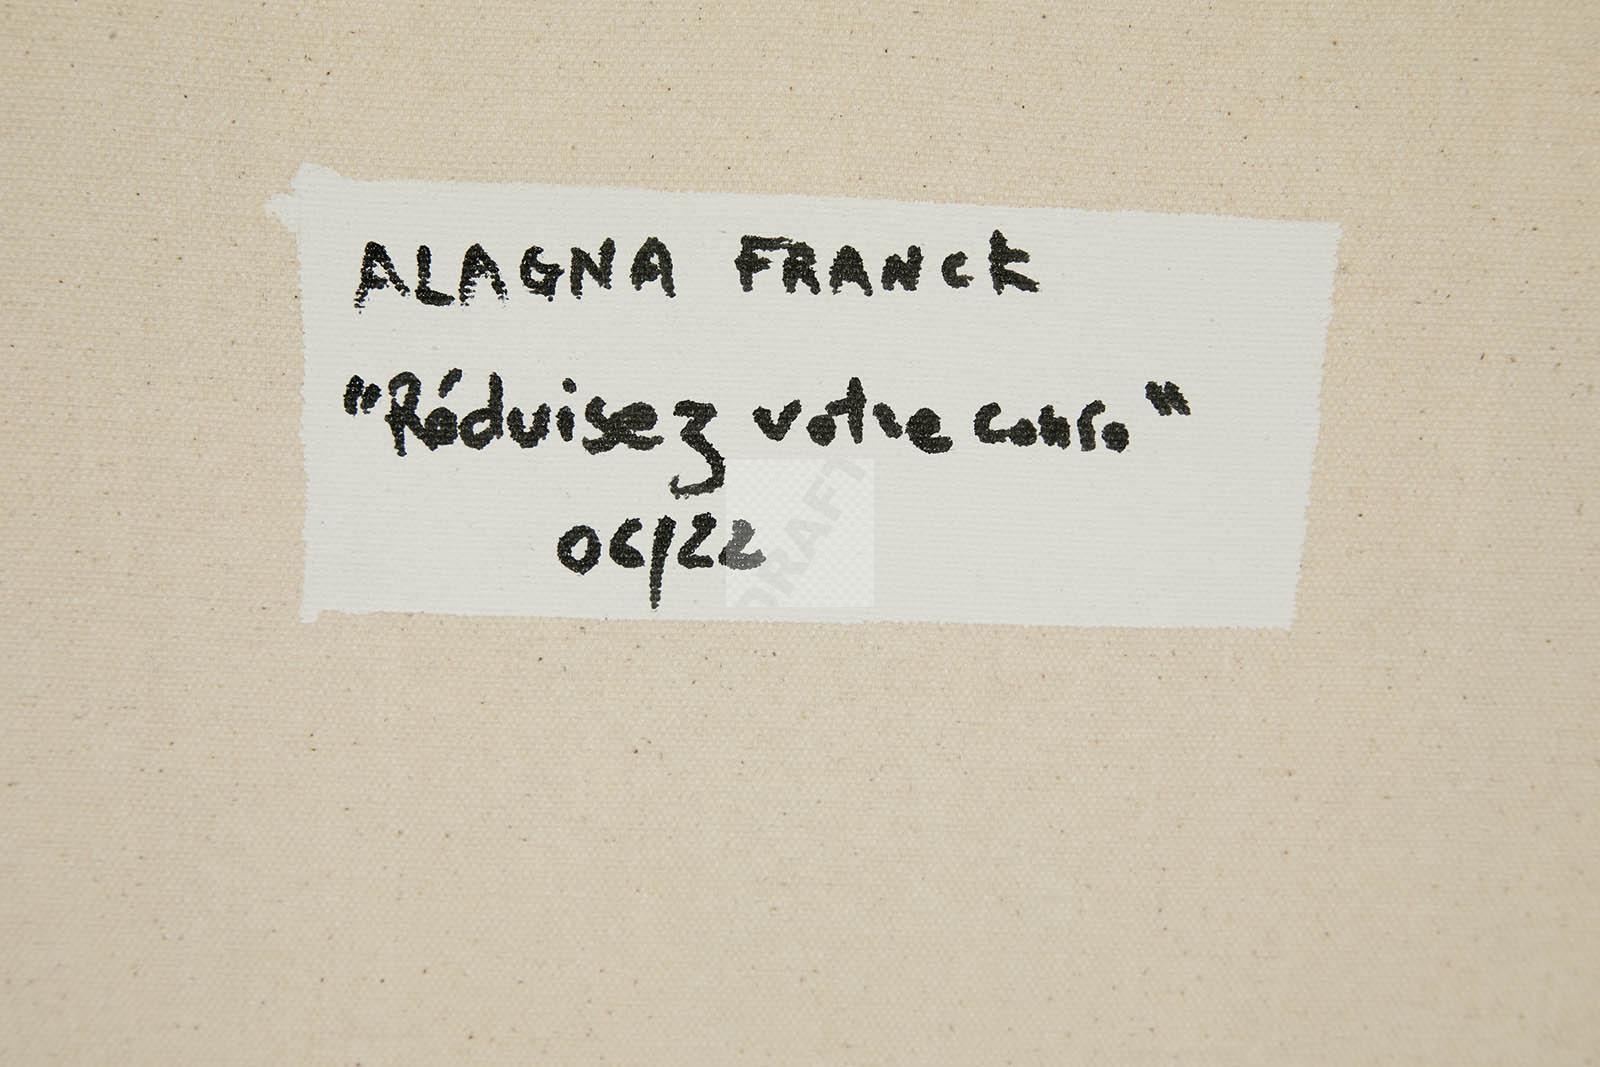 ALAGNA FRANCK
"Réduisez votre conso"
06/22
DRAFT